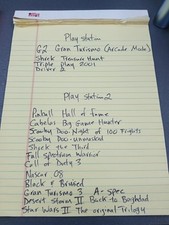 Play station
G2 Gran Turismo (Arcade Mode)
Shrek Treasure Hunt
Triple Play 2001
Driver 2
Play station 2
Pinball Hall of fame
Cabelas Big Game Hunter
Scooby Doo Night of 100 Frights
Scooby Doo unmasked
Shrek the Third
Full Spectrum Warrior
Call of Duty 3
Nascar 08
Black & Bruised
Gran Turismo 3 A-spec
Desert Storm II Back to Baghdad
Star Wars II The original Trilogy